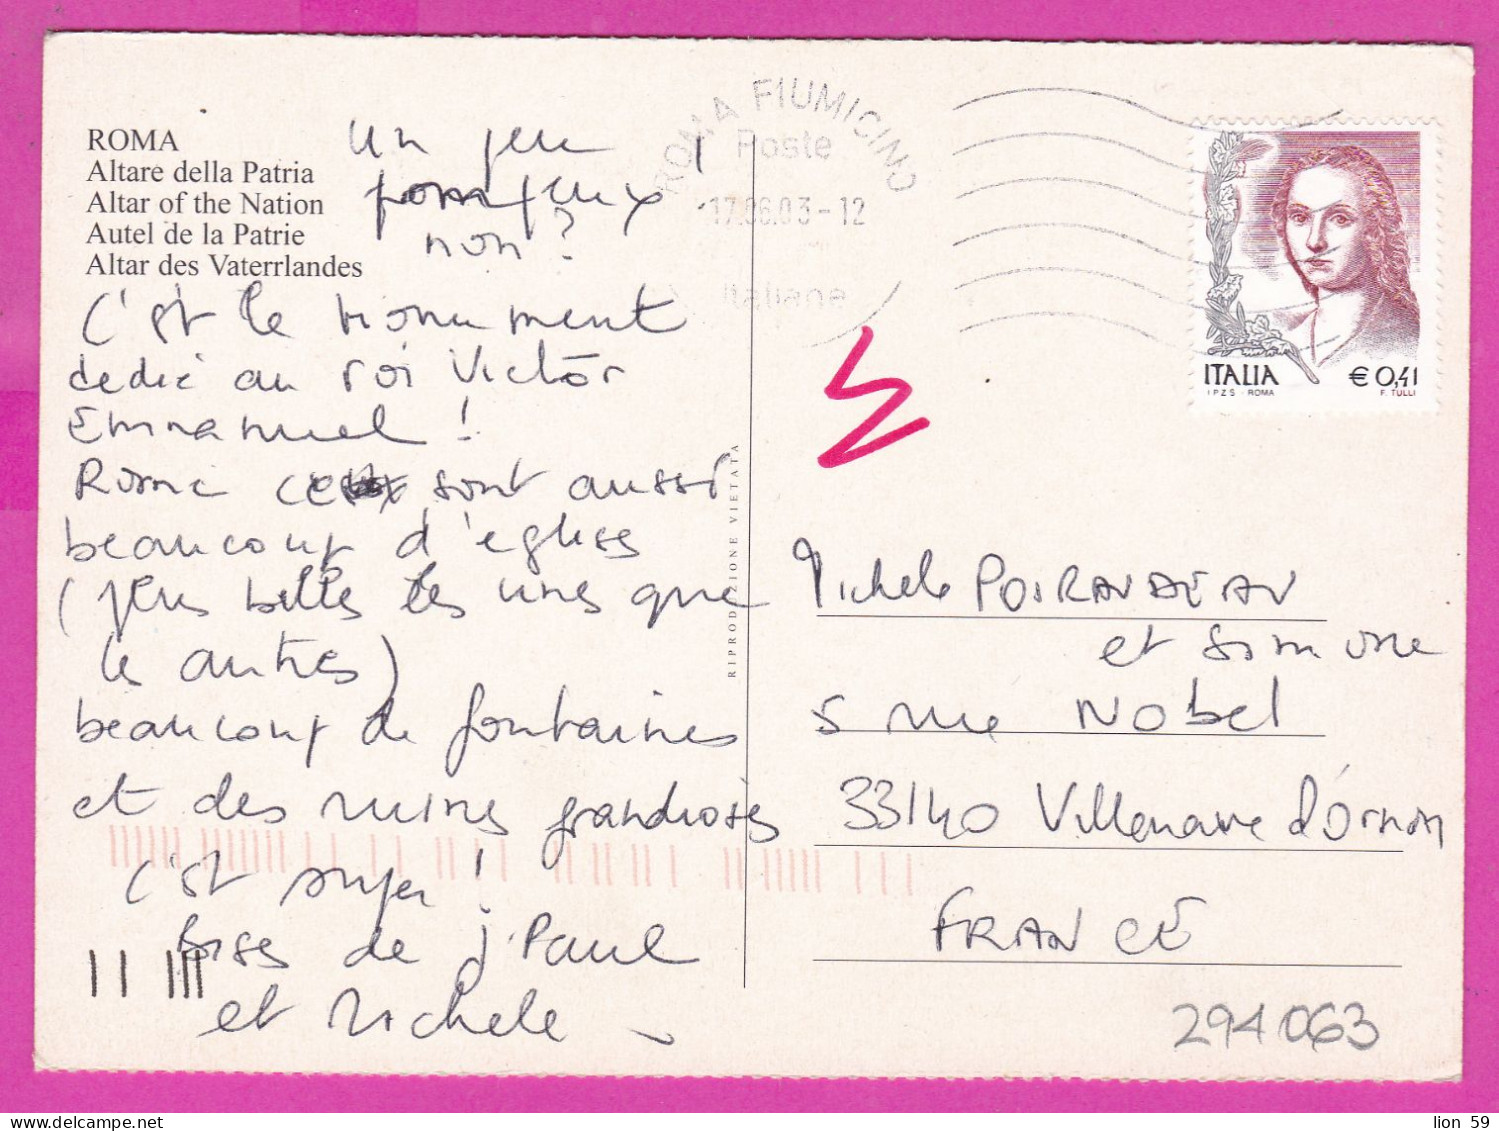 ROMA
Altare della Patria
Altar of the Nation
Autel de la Patrie
Altar des Vaterrlandes
Un peu
pompeux
non?
C'est le monument
dedié au roi Victor
Emmanuel !
Rome ce sont aussi
beaucoup d'eglises
(plus belles les unes que
les autres)
beaucoup de fontaines
et des ruines grandioses
C'est super !
Bises de J. Paul
et Michele
RIPRODUZIONE VIETATA
ROMA FIUMICINO
Poste
17.06.03-12
Italiane
ITALIA € 0,41
I P Z S - ROMA F. TULLI
Michele POIRANDEAU
et Simone
5 rue Nobel
33140 Villenave d'Ornon
FRANCE
294063
lion 59